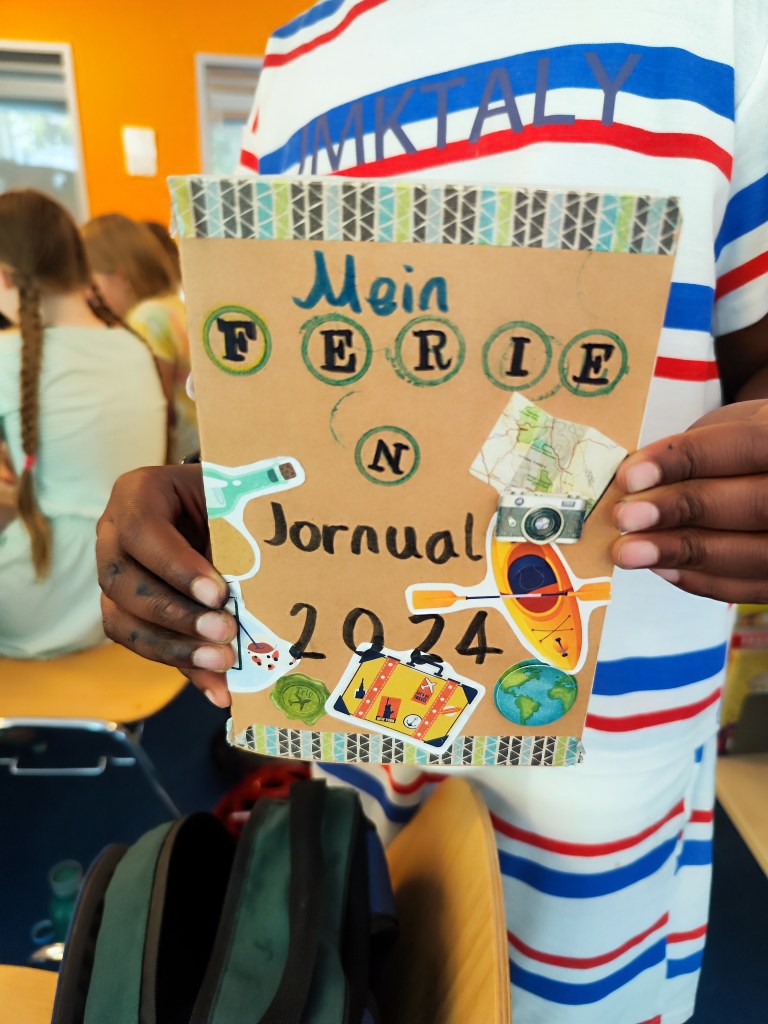 JMKTALY
Mein
FERIE
N
Jornual
2024